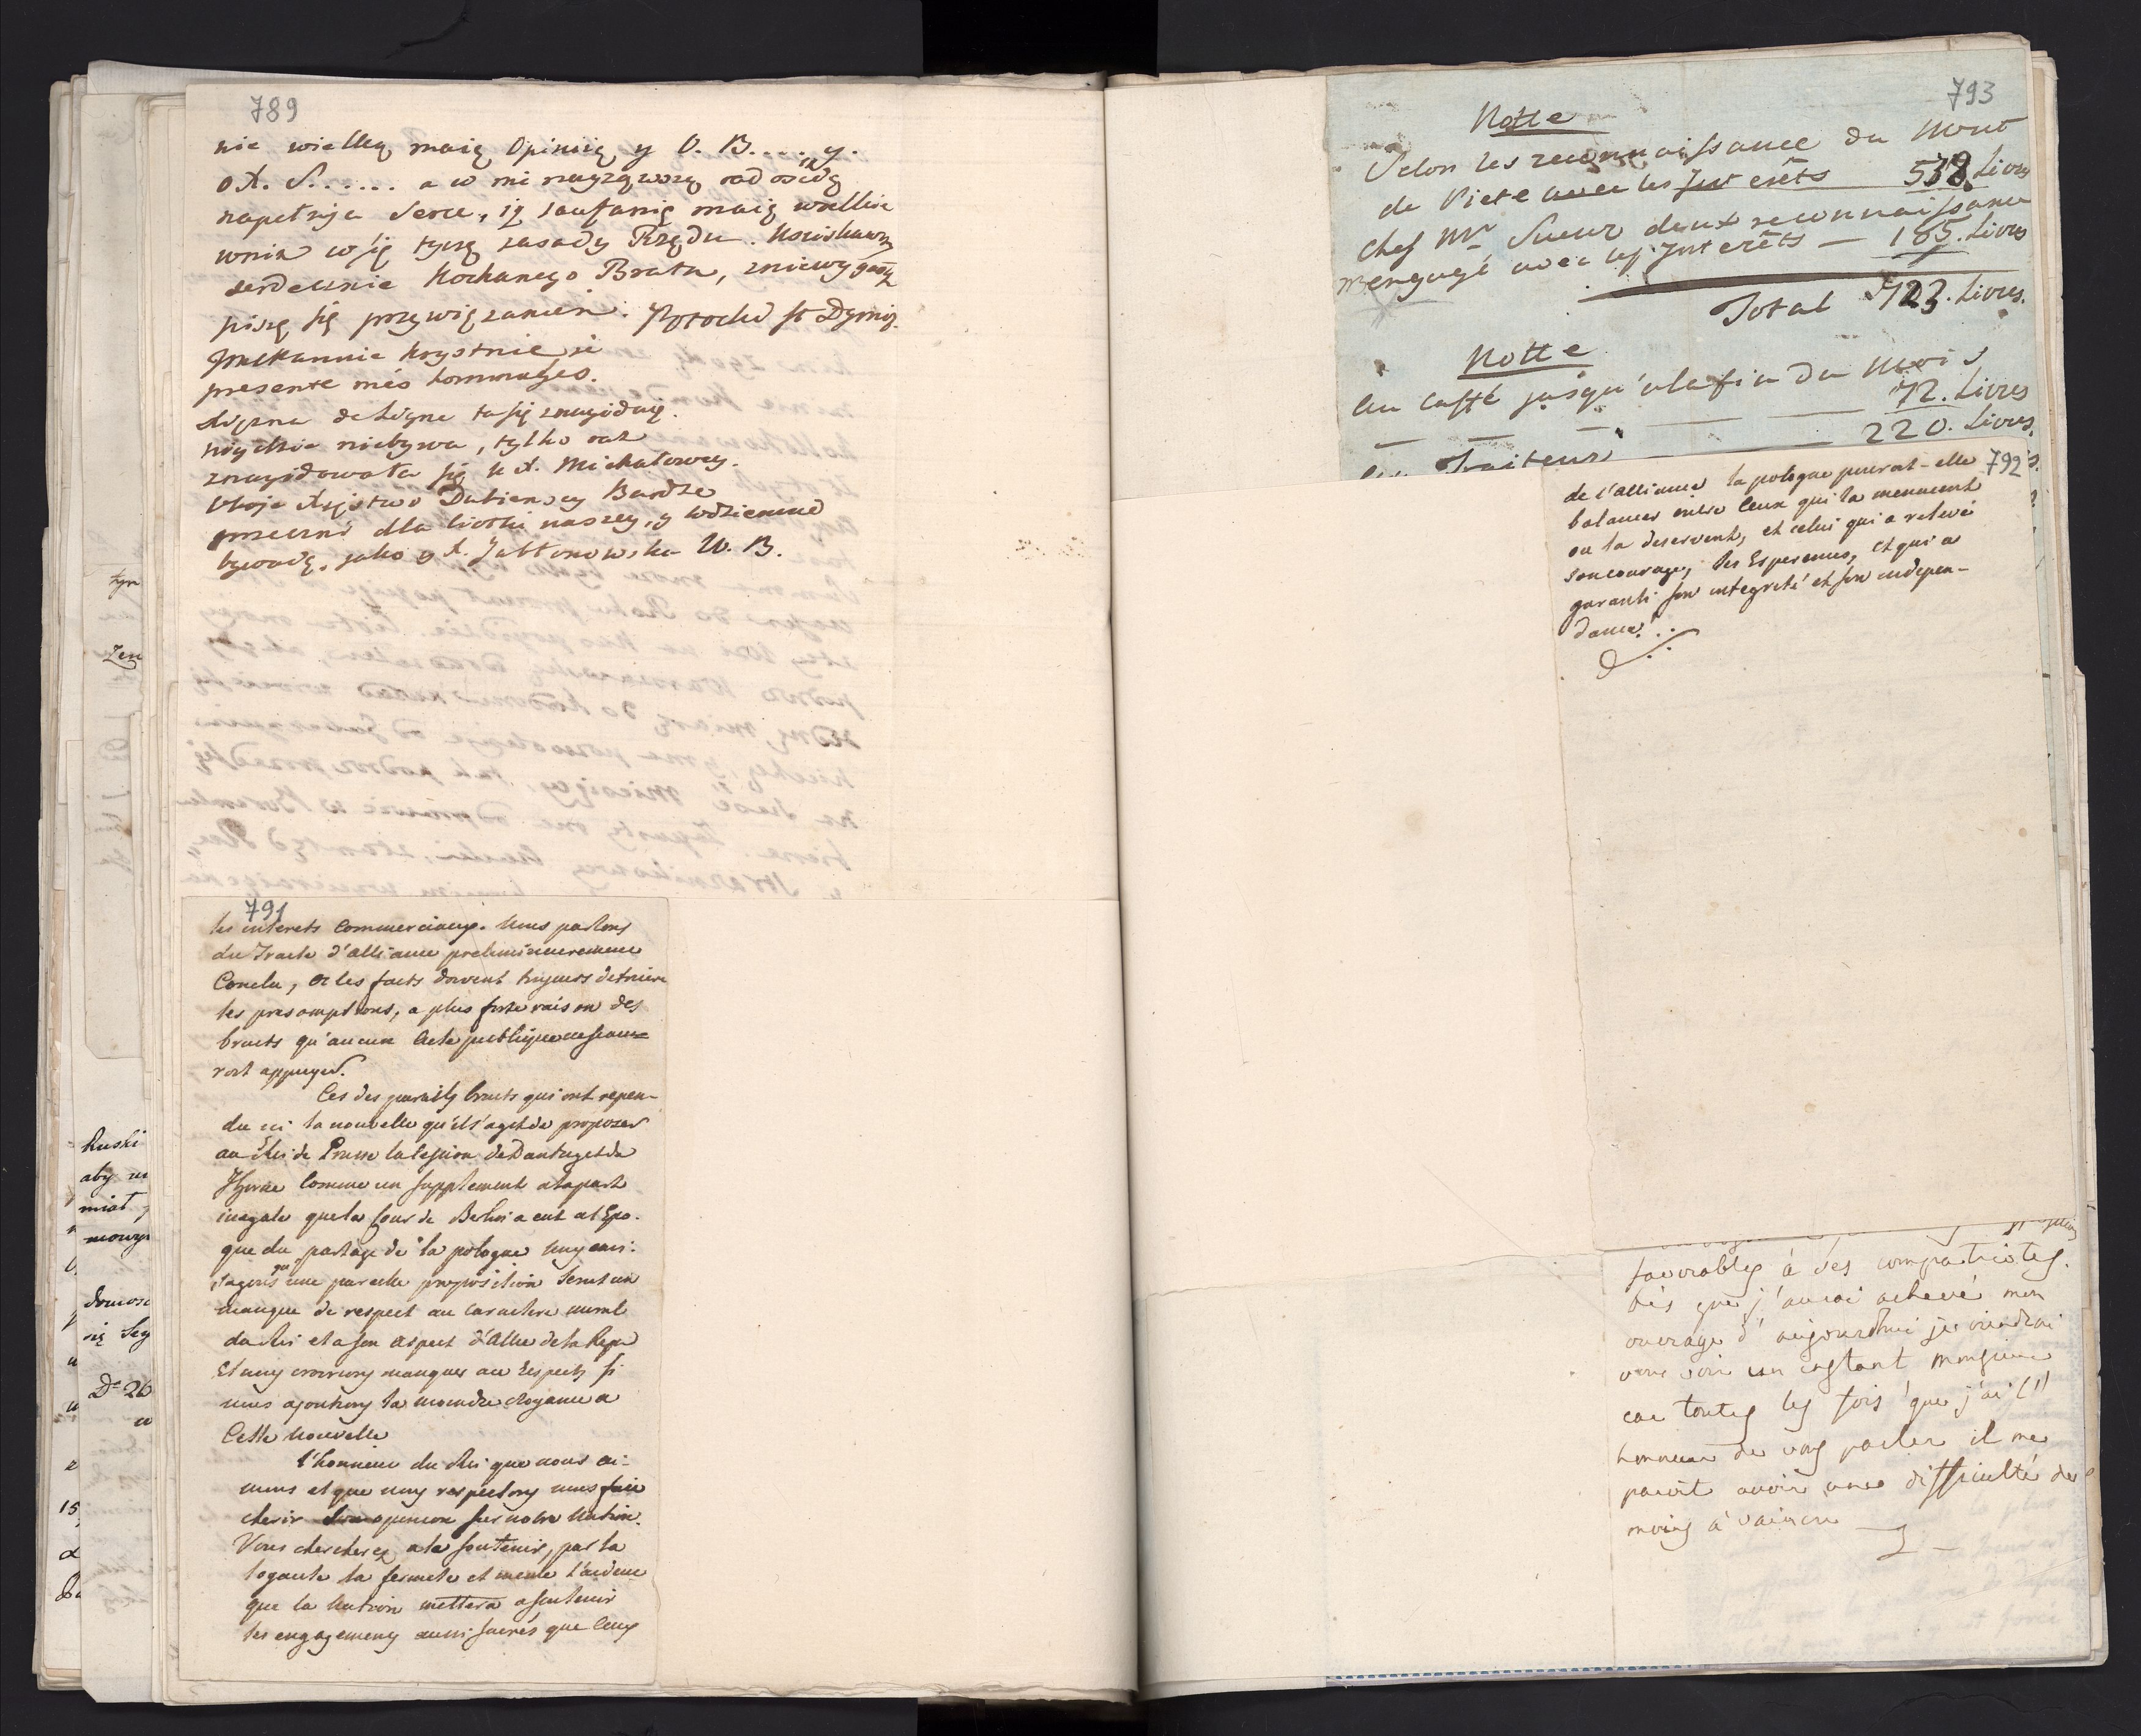 789
nie wielką maią Opinię y O. B.... y.
o X. S......
napełnia Serce, iż zaufanię maią
w tę zasady Rządu.
serdecznie Kochanego Brata,
piszę się przywiązaniem. Potocki
Pannie Krystnie je
presente més hommages.
Xiężna de Ligne tu się znayduię.
niebywa, tylko raz
znaydowała się u X. Michałowey.
Xięstwo Bardze
grzeczni dla Ciotki naszey, y
bywaią. jako y X. Jabłonowska W. B.
791
les interets Commerciaux. Nous parlons
du Traité d'alliance
Conclu, et les faits doivent toujours detruire
les presomptions, a plus forte raison des
bruits qu'aucun Acte publique ne sau-
roit appuyer.
Ces des pareils bruits qui ont repen-
du ici la nouvelle qu'il s'agit de proposer
au Roi de Prusse la Cession de Dantzig et de
Thorne Comme un supplement a la part
inegale que la Cour de Berlin a eut a l'Epo-
que du partage de la pologne
qu'une pareille proposition seroit un
manque de respect au Caractere moral
du Roi et a son aspect d'Allié de la Repu
Et nous croirions manquer au Respect si
nous ajoutions la moindre croyance a
Cette Nouvelle
l'honneur du Roi que nous ai-
mons et que nous respectons nous fait
cherir opinion sur notre Nation.
Vous chercherez a la soutenir, par la
loyauté la fermeté et meme l'ardeur
que la Nation mettera a soutenir
les engagemens aussi sacrés que Ceux
793
Notte
Selon les reconnaissance du Mont
de Piete avec les Interêts 538. Livres
Chez Mr Sueur deux reconnaissance
engagé avec les Interêts — 185. Livres
Total 723. Livres.
Notte
Au Caffé jusqu'a la fin du Mois
— — — 72. Livres
Traiteur — 220. Livres.
792
de l'Alliance la pologne pourait-elle
balancer entre Ceux qui la menacent
ou la deservent, et celui qui a relevé
son courage, ses Esperences, et qui a
garanti son integrité et son indepen-
dance!..
favorables à ses compatriotes.
Dès que j'aurai achevé mon
ouvrage d'aujourdhui je viendrai
vous voir un instant Monsieur
car toutes les fois que j'ai l'
honneur de vous parler il me
paroit avoir une difficulté de
moins à vaincre —
tyn
Zen
Ruski
aby
miat
domosc
się
De 26
15